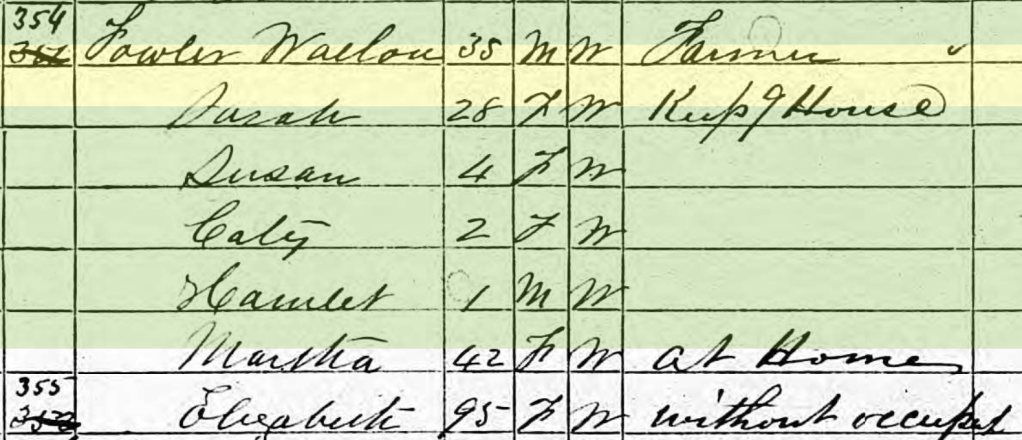 354
Fowler Walton 35 M W Farmer
Sarah 28 F W Keepg House
Susan 4 F W
Caty 2 F W
Hamlet 1 M W
Martha 42 F W at Home
355
Elizabeth 95 F W without occupat